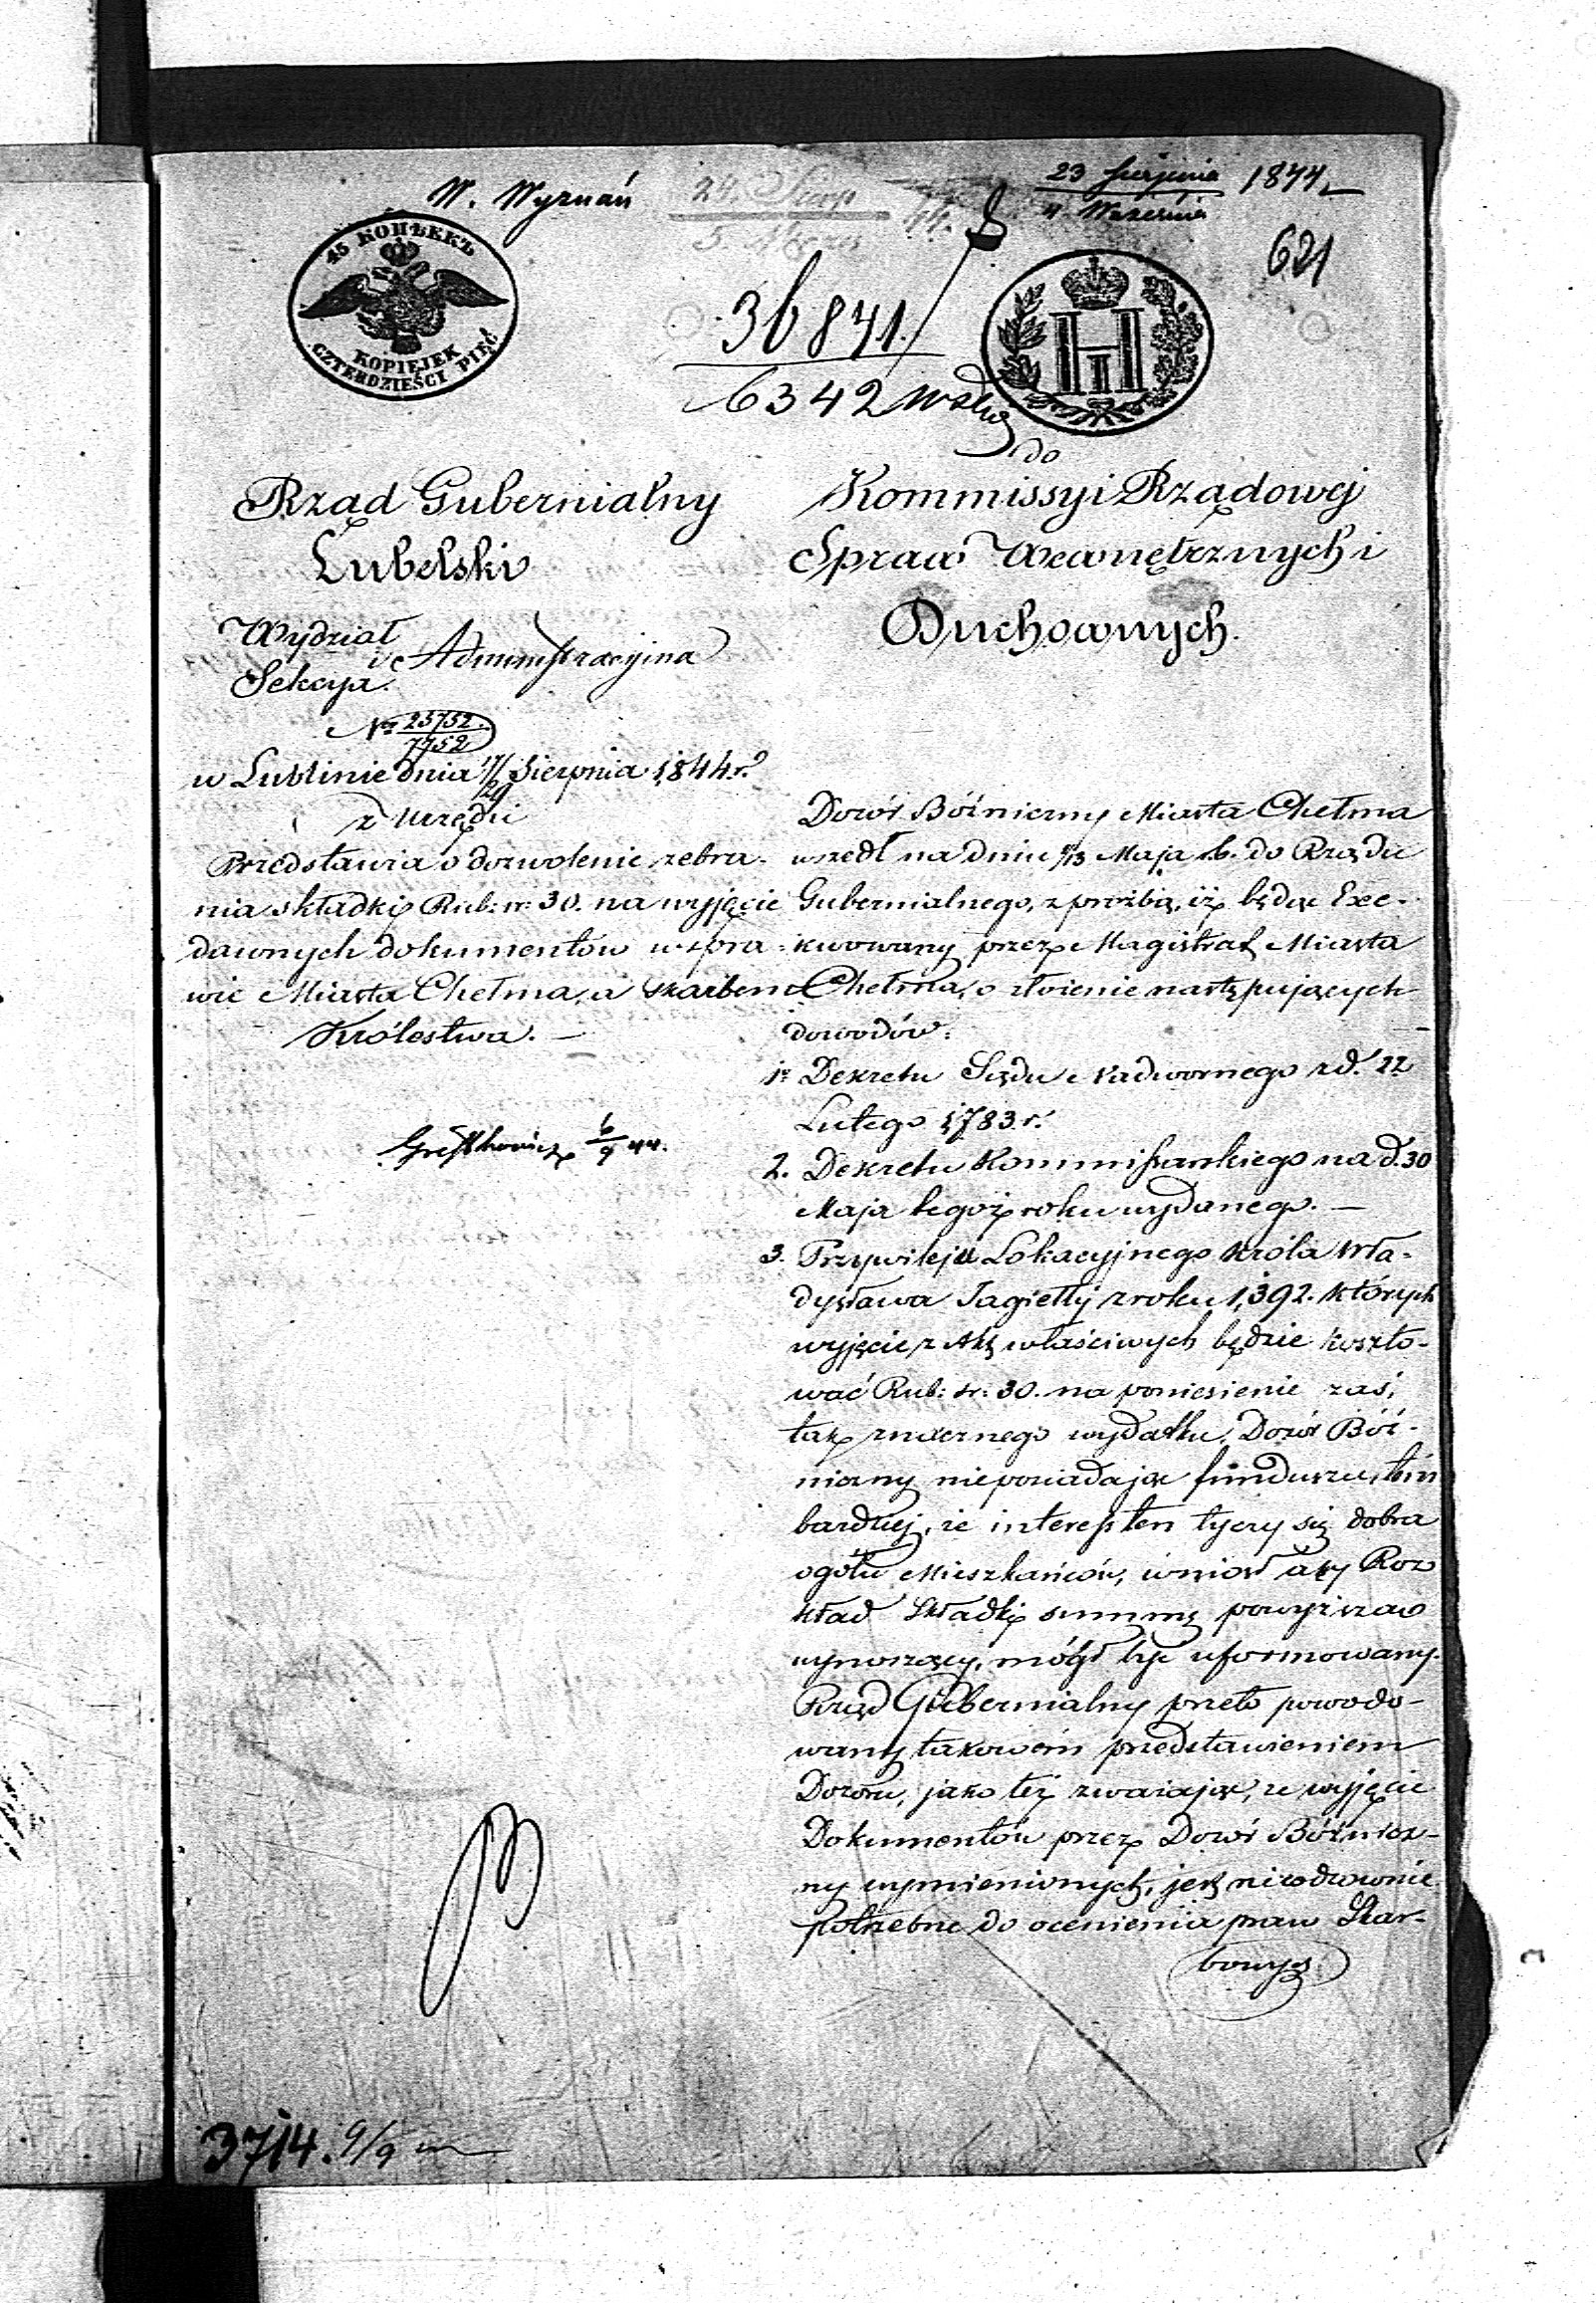 W. Wyznań
24. Sierp
5.
44.
23 Sierpnia 1844
4. Września
621
45 КОПѢЕКЪ
KOPIEJEK
CZTERDZIEŚCI PIĘĆ
36841.
6342
HI
Rząd Gubernialny
Lubelski
Wydział
i Administracyjna
Sekcya
Nr 25752.
7752
w Lublinie dnia 17/29 Sierpnia 1844 r.
z Urzędu
Przedstawia o dozwolenie zebra-
nia składki Rub: sr: 30. na wyjęcie
dawnych dokumentów w spra-
wie Miasta Chełma, a Skarbem
Królestwa. —
6/9 44.
do
Kommissyi Rządowej
Spraw Wewnętrznych i
Duchownych.
Dozór Bóżniczny Miasta Chełma
wszedł na dniu 1/13 Maja r.b. do Rządu
Gubernialnego, z prożbą, iż będąc Exe-
kwowany przez Magistrat Miasta
Chełma, o złożenie następujących
dowodów:
1. Dekretu Sądu Nadwornego z d. 22
Lutego 1783 r.
2. Dekretu Kommissarskiego na d. 30
Maja tegoż roku wydanego. —
3. Przywileju Lokacyjnego Króla Wła-
dysława Jagiełły z roku 1,392. których
wyjęcie z Akt właściwych będzie koszto-
wać Rub: sr: 30. na poniesienie zaś,
tak znacznego wydatku, Dozór Bóż-
niczny nieposiadając funduszu, tém
bardziej, że interes ten tyczy się dobra
ogółu Mieszkańców, wniosł aby Roz
kład Składki summę powyższą
wynoszący, mógł być uformowany.
Rząd Gubernialny przeto powodo-
wany takowém przedstawieniem
Dozoru, jako też zważając, że wyjęcie
Dokumentów przez Dozór Bóżnicz-
ny wymienionych, jest nieodzownie
potrzebne do ocenienia praw Skar-
bowych
3714. 9/9